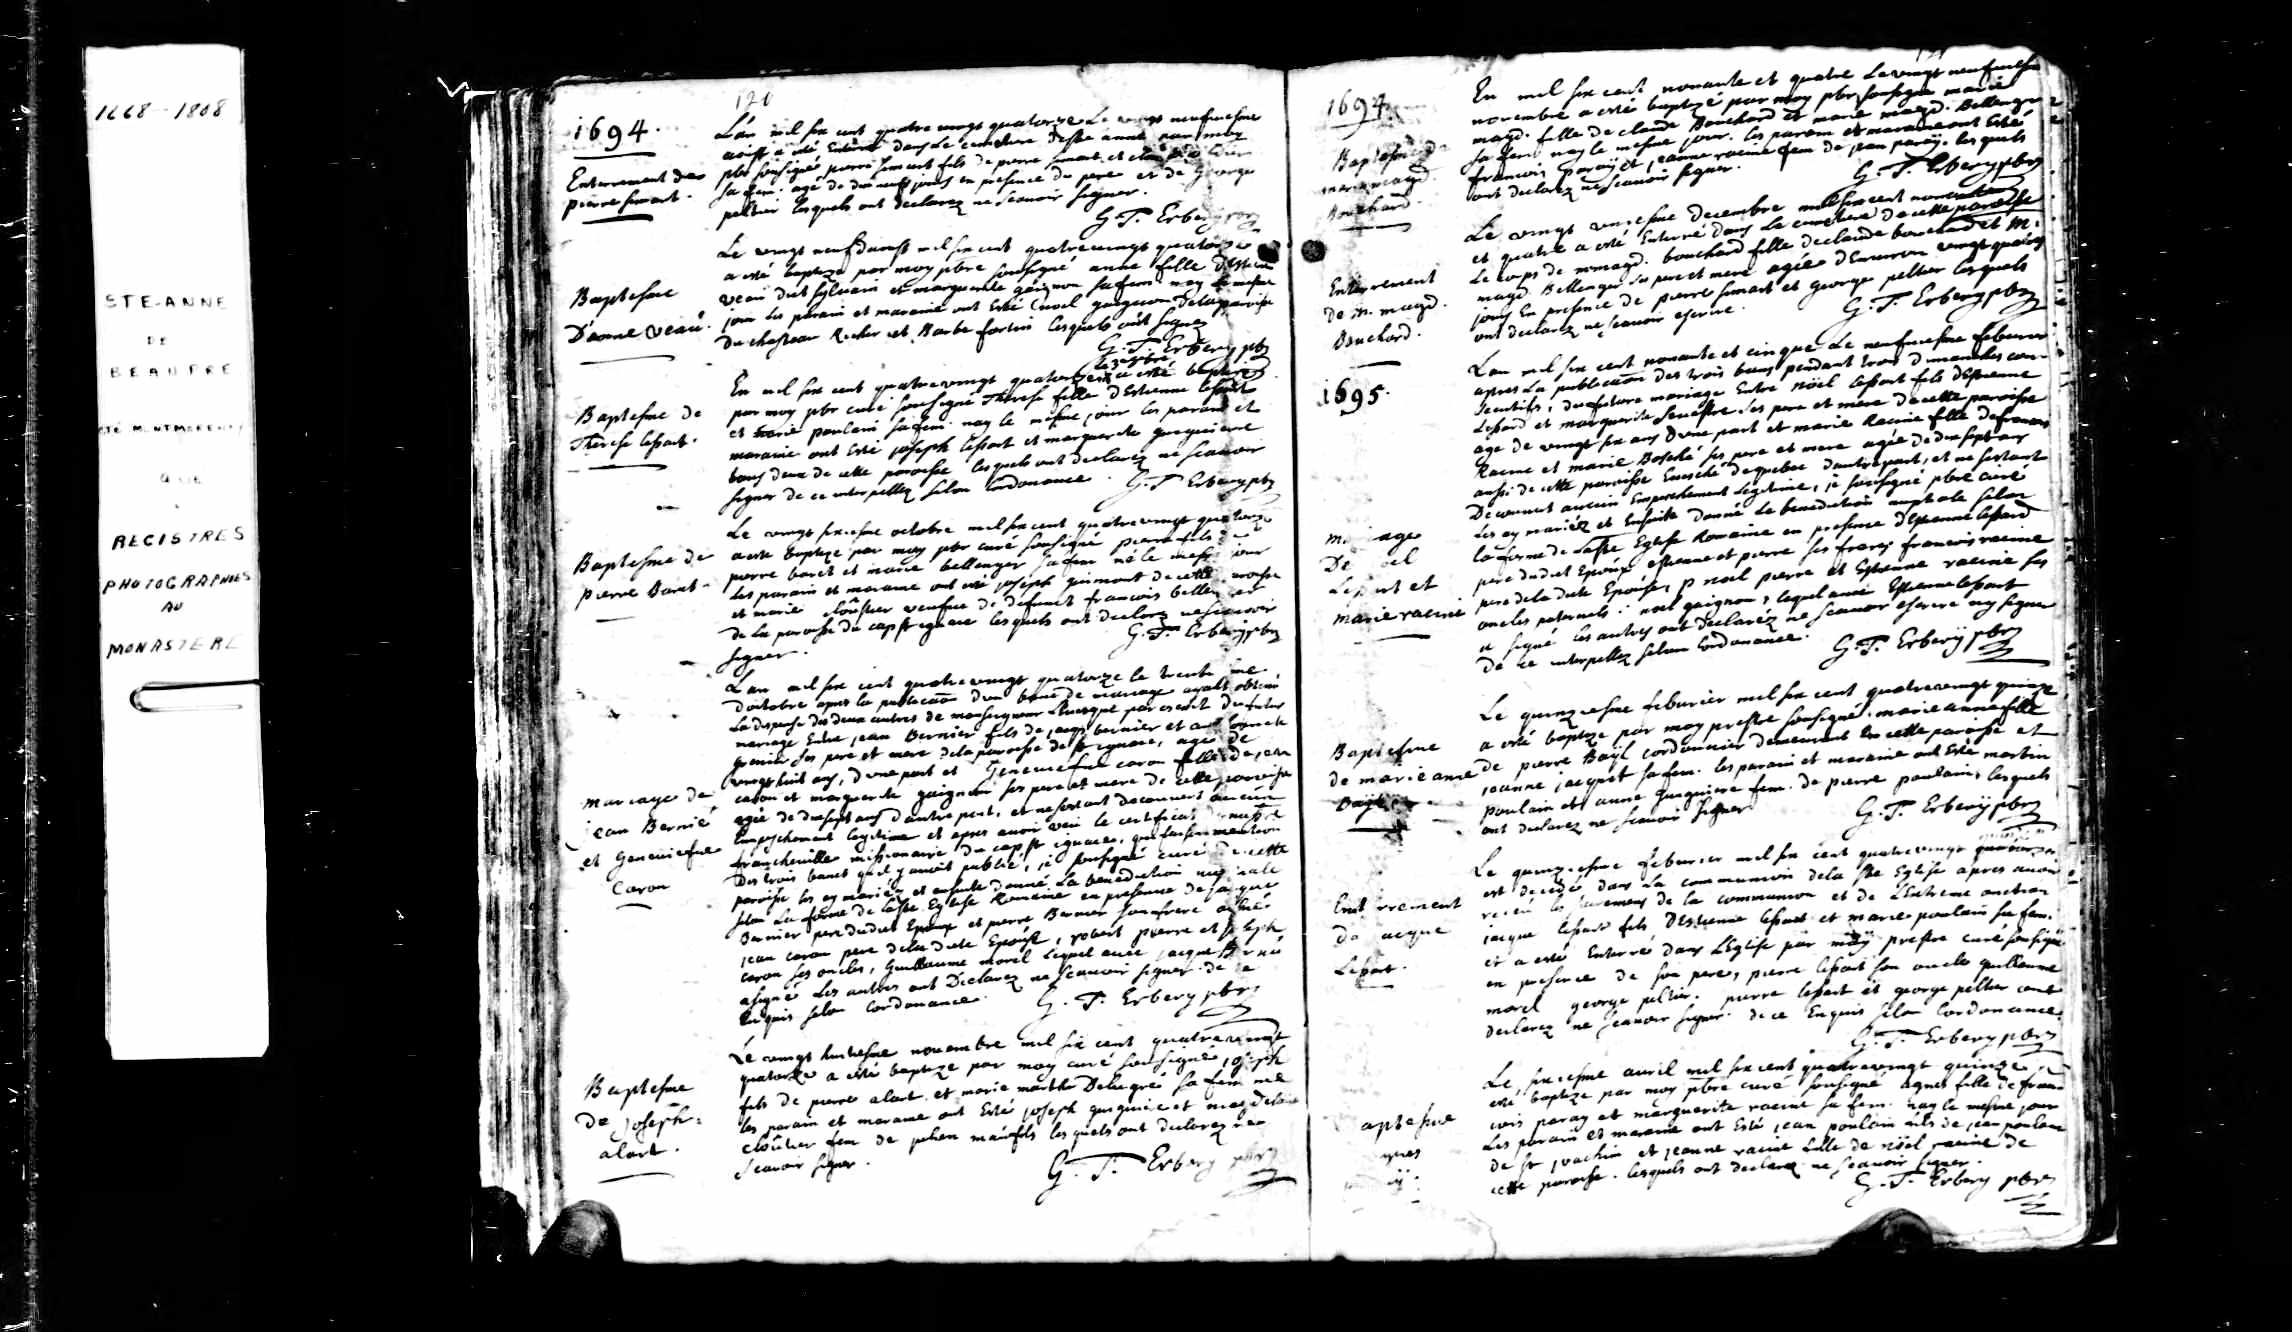 1668 - 1808
STE-ANNE
DE
BEAUPRE
REGISTRES
PHOTOGRAPHIES
AU
MONASTERE
120
1694.
Enterrement de
pierre simart.
L'an mil six cent quatre vingt quatorze Le vingt neufiesme
aoust a esté Enterré dans Le cimetiere de ste anne par moy
pbr soussigné pierre simart fils de pierre simart et
sa fem. agé de dix neuf jours en presence du pere et de George
peltier lesquels ont declarez ne scauoir signer.
G. T. Erbery pbr
Baptesme
D'anne veau.
Le vingt neuf d'aoust mil six cent quatre vingt quatorze
a esté baptize par moy pbre soussigné anne fille D'estienne
veau dit sylvain et marguerite gaignon sa fem. nay le mesme
jour les parain et maraine ont Esté Noel gaignon de la paroisse
du chasteau Richer et Barbe fortin lesquels ont signez
G. T. Erbery pbr
Baptesme de
Therese lessart.
En mil six cent quatre vingt quatorze a esté baptizee
par moy pbr curé soussigné Therese fille D'Estienne lessart
et marie poulain sa fem. nay le mesme jour les parain et
maraine ont Esté joseph lessart et marguerite gasquiere
tous deux de cette paroisse lesquels ont declarez ne scauoir
signer de ce interpellez selon l'ordonance. G. T. Erbery pbr
Baptesme de
pierre Baret.
Le vingt sixiesme octobre mil six cent quatre vingt quatorze
a esté baptize par moy pbr curé soussigné pierre fils de
pierre baret et marie bellanger sa fem. né le mesme jour
les parain et maraine ont esté joseph guimont de cette paroisse
et marie cloûtier veufue de defunct francois bellenger
de la paroisse du cap st ignace lesquels ont declarez ne scauoir
signer. G. T. Erbery pbr
Mariage de
jean Bernié
et Geneuiefue
Caron
L'an mil six cent quatre vingt quatorze le trentiesme
d'octobre apres la publication d'un banc de mariage ayant obtenu
La dispense des deux autres de monseigneur L'euesque par escrit du futur
mariage Entre jean Bernier fils de jacqs bernier et antoinette
grenier ses pere et mere de la paroisse de st ignace, agé de
vingt huit ans, d'une part et Geneuiefue caron fille de jean
caron et marguerite gaignon ses pere et mere de cette paroisse
agée de dixsept ans d'autre part, et ne sestant decouuert aucun
Empeschement legitime et apres auoir veu le certificat de
francheuille missionaire du cap st ignace, qui faisoit mention
des trois bancs qu'il y auoit publié, je soussigné curé de cette
paroisse les ay mariéz et ensuite donné La benediction nuptiale
selon La forme de la ste Eglise Romaine en presence de jacque
Bernier pere du dit Epoux et pierre Bernier son frere
jean caron pere de la dite Epouse, robert pierre et joseph
caron ses oncles, Guillaume morel lequel auec jacque Bernié
a signé les autres ont Declarez ne scauoir signer de ce
Enquis selon l'ordonance. G. T. Erbery pbr
Baptesme
de joseph
alart.
Le vingt huitiesme nouembre mil six cent quatre vingt
quatorze a esté baptize par moy curé soussigné joseph
fils de pierre alart et marie marthe Delugré sa fem né
les parain et maraine ont Esté joseph gasquiere et magdelaine
cloûtier fem de julien maufils lesquels ont declarez ne
scauoir signer. G. T. Erbery pbr
1694
Baptesme de
marie magd.
Bouchard.
En mil six cent nonante et quatre Le vingt neufiesme
novembre a esté baptizé par moy pbr soussigné marie
magd. fille de claude Bouchard et marie magd. Bellenger
sa fem. nay le mesme jour. les parain et maraine ont Esté
francois paraÿ et jeanne racine fem de jean paraÿ. lesquels
ont declarez ne scauoir signer. G. T. Erbery pbr
Enterrement
de m. magd.
Bouchard.
Le vingt unyesme decembre mil six cent nonante
et quatre a esté Enterré dans Le cimetiere de cette paroisse
Le corps de m magd. bouchard fille de claude bouchard et m.
magd. Bellenger ses pere et mere agée d'Enuiron vingt quatre
jours En presence de pierre simart et george peltier lesquels
ont declarez ne scauoir escrire. G. T. Erbery pbr
1695.
Mariage
De Noel
Lessart et
marie racine
L'an mil six cent nonante et cinque Le neufuiesme feburier
apres La publication des trois bans pendant trois dimanches con-
secutifs, du futur mariage Entre noël lessart fils d'Estienne
Lessard et marguerite seuestre ses pere et mere de cette paroisse
age de vingt six ans d'une part et marie Racine fille de francois
Racine et marie Bosché ses pere et mere agée de dix sept ans
aussi de cette paroisse Euesché de quebec d'autre part, et ne sestant
Decouuert aucun Empeschement Legitime, je soussigné pbre curé
Les ay mariéz et Ensuite donné La benediction nuptiale selon
la forme de la ste Eglise Romaine en presence d'Estienne lessard
pere du dit Epoux estienne et pierre ses freres francois racine
pere de la dite Epouse, noel pierre et Estienne racine ses
oncles paternels, noel gaignon, lequel auec Estienne lessart
a signé les autres ont declaréz ne scauoir escrire ny signer
de ce interpellez selon l'ordonance. G. T. Erbery pbr
Baptesme
de marie anne
Bayl
Le quinziesme feburier mil six cent quatre vingt quinze
a esté baptize par moy prestre soussigné. marie anne fille
de pierre Bayl cordonnier demeurant En cette paroisse et
jeanne jacquet sa fem. les parain et maraine ont Esté martin
poulain et anne gasquiere fem. de pierre poulain, lesquels
ont declarez ne scauoir signer G. T. Erbery pbr
Enterrement
de jacque
Lessart.
Le quinziesme feburier mil six cent quatre vingt
est decedé dans La communion de la ste Eglise apres auoir
receu les sacremens de la communion et de L'Extreme onction
jacque lessart fils D'Estienne lessart et marie poulain sa fem.
et a esté Enterré dans L'Eglise par moÿ prestre curé soussigné
en presence de son pere, pierre lessart son oncle guillaume
morel george peltier. pierre lessart et george peltier ont
declarez ne scauoir signer. de ce Enquis selon l'ordonance.
G. T. Erbery pbr
aptesme
Le sixiesme auril mil six cent quatre vingt quinze a
esté baptize par moy pbre curé soussigné agnes fille de fran-
cois paray et marguerite racine sa fem. nay le mesme jour
Les parain et maraine ont Esté jean poulain fils de jean poulain
de st joachim et jeanne racine fille de noël racine de
cette paroisse. lesquels ont declarez ne scauoir signer.
G. T. Erbery pbr